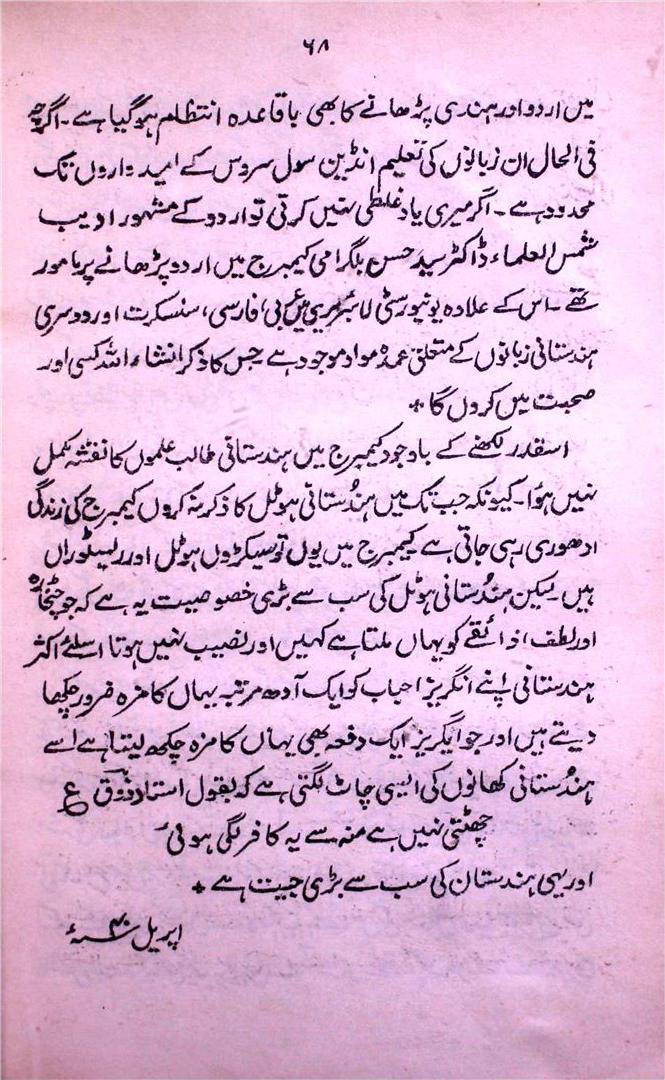 ۶۸
میں اردو اور ہندی پڑھانے کا بھی باقاعدہ انتظام ہو گیا ہے۔ اگرچہ
فی الحال ان زبانوں کی تعلیم انڈین سول سروس کے امیدواروں تک
محدود ہے۔ اگر میری یاد غلطی نہیں کرتی تو اردو کے مشہور ادیب
شمس العلماء ڈاکٹر سید حسن بلگرامی کیمبرج میں اردو پڑھانے پر مامور
تھے۔ اس کے علاوہ یونیورسٹی لائبریری میں عربی، فارسی، سنسکرت اور دوسری
ہندستانی زبانوں کے متعلق عمدہ مواد موجود ہے جس کا ذکر انشاء اللہ کسی اور
صحبت میں کروں گا +
اسقدر لکھنے کے باوجود کیمبرج میں ہندستانی طالب علموں کا نقشہ مکمل
نہیں ہؤا۔ کیونکہ جب تک میں ہندُستانی ہوٹل کا ذکر نہ کروں کیمبرج کی زندگی
ادھوری رہی جاتی ہے کیمبرج میں یوں تو سیکڑوں ہوٹل اور ریسٹوراں
ہیں۔ لیکن ہندُستانی ہوٹل کی سب سے بڑی خصوصیت یہ ہے کہ جو چٹخارہ
اور لطف ذائقے کو یہاں ملتا ہے کہیں اور نصیب نہیں ہوتا اسلئے اکثر
ہندستانی اپنے انگریز احباب کو ایک آدھ مرتبہ یہاں کا مزہ ضرور چکھا
دیتے ہیں اور جو انگریز ایک دفعہ بھی یہاں کا مزہ چکھ لیتا ہے اسے
ہندُستانی کھانوں کی ایسی چاٹ لگتی ہے کہ بقول استاد ذوق ع
چھٹتی نہیں ہے منہ سے یہ کافر لگی ہوئی
اور یہی ہندستان کی سب سے بڑی جیت ہے +
اپریل ۴۰ء